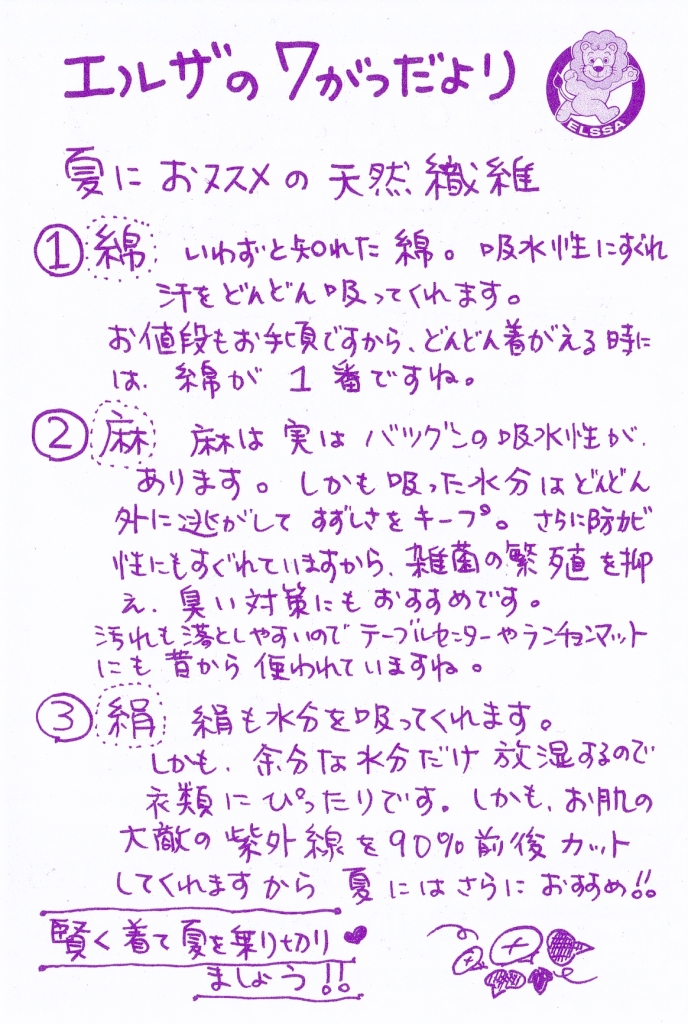 エルザの7がつだより
ELSSA
夏におススメの天然繊維
① 綿 いわずと知れた綿。吸水性にすぐれ
汗をどんどん吸ってくれます。
お値段もお手頃ですから、どんどん着がえる時に
は、綿が1番ですね。
② 麻 麻は実はバツグンの吸水性が、
あります。しかも吸った水分はどんどん
外に逃がしてすずしさをキープ。さらに防カビ
性にもすぐれていますから、雑菌の繁殖を抑
え、臭い対策にもおすすめです。
汚れも落としやすいのでテーブルセンターやランチョンマット
にも昔から使われていますね。
③ 絹 絹も水分を吸ってくれます。
しかも、余分な水分だけ放湿するので
衣類にぴったりです。しかも、お肌の
大敵の紫外線を90%前後カット
してくれますから夏にはさらにおすすめ!!
賢く着て夏を乗り切り
ましょう!!